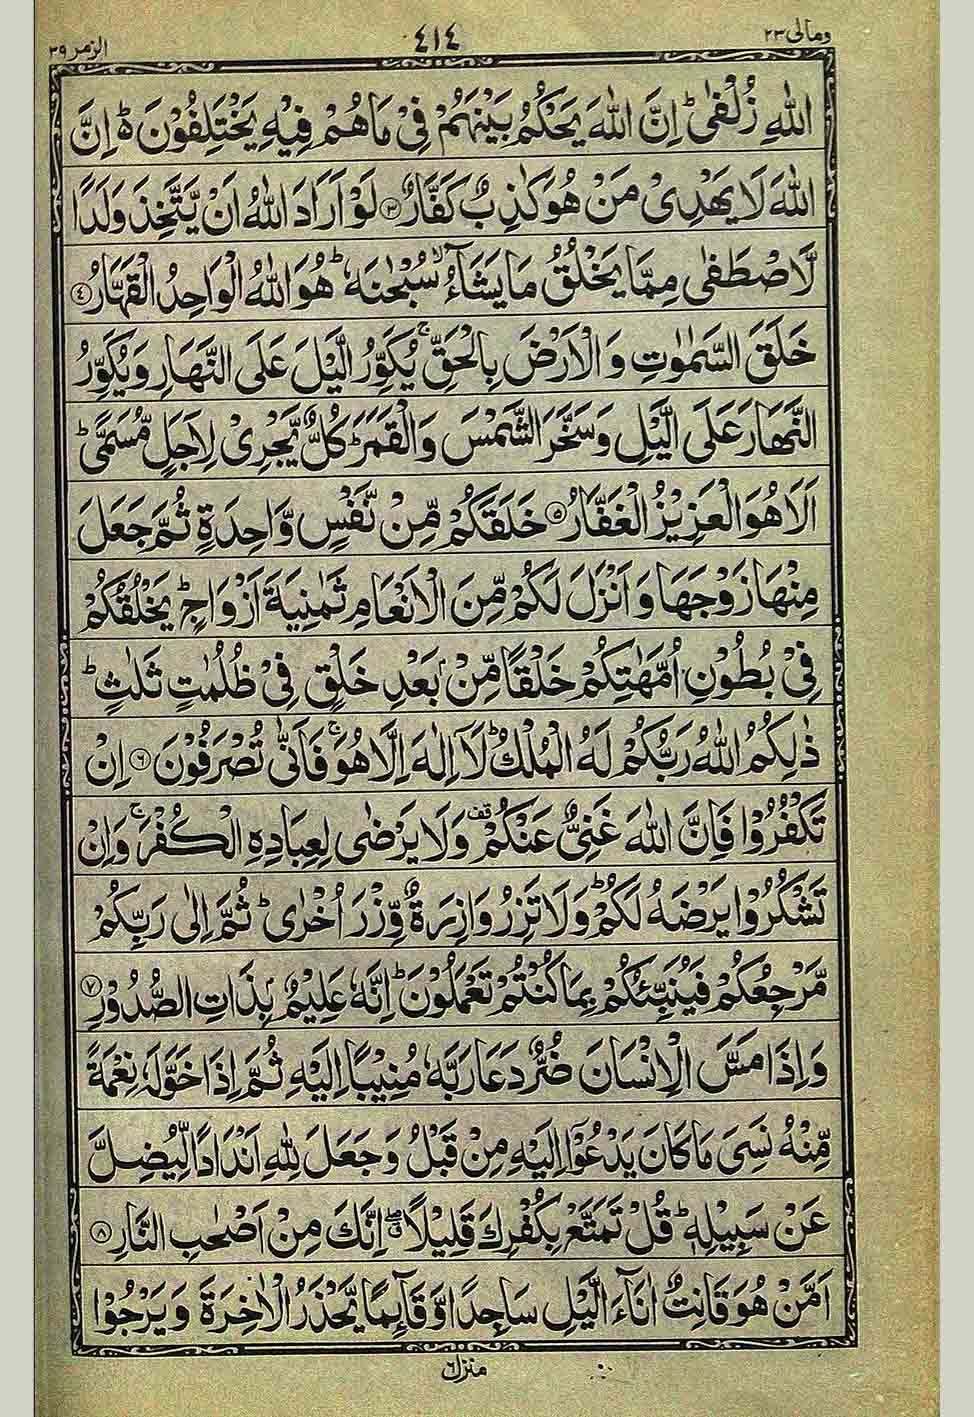 ومالی ٢٣ ٤١٤ الزمر ٣٩
اللّٰهِ زُلْفٰىؕ اِنَّ اللّٰهَ يَحْكُمُ بَيْنَهُمْ فِىْ مَا هُمْ فِيْهِ يَخْتَلِفُوْنَ ؕ اِنَّ
اللّٰهَ لَا يَهْدِىْ مَنْ هُوَ كٰذِبٌ كَفَّارٌ ﴿٣﴾ لَوْ اَرَادَ اللّٰهُ اَنْ يَّتَّخِذَ وَلَدًا
لَّاصْطَفٰى مِمَّا يَخْلُقُ مَا يَشَآءُ ۙ سُبْحٰنَهٗ ؕ هُوَ اللّٰهُ الْوَاحِدُ الْقَهَّارُ ﴿٤﴾
خَلَقَ السَّمٰوٰتِ وَ الْاَرْضَ بِالْحَقِّ ۚ يُكَوِّرُ الَّيْلَ عَلَى النَّهَارِ وَيُكَوِّرُ
النَّهَارَ عَلَى الَّيْلِ وَسَخَّرَ الشَّمْسَ وَالْقَمَرَ ؕ كُلٌّ يَّجْرِىْ لِاَجَلٍ مُّسَمًّى ؕ
اَلَا هُوَ الْعَزِيْزُ الْغَفَّارُ ﴿٥﴾ خَلَقَكُمْ مِّنْ نَّفْسٍ وَّاحِدَةٍ ثُمَّ جَعَلَ
مِنْهَا زَوْجَهَا وَ اَنْزَلَ لَكُمْ مِّنَ الْاَنْعَامِ ثَمٰنِيَةَ اَزْوَاجٍ ؕ يَخْلُقُكُمْ
فِىْ بُطُوْنِ اُمَّهٰتِكُمْ خَلْقًا مِّنْۢ بَعْدِ خَلْقٍ فِىْ ظُلُمٰتٍ ثَلٰثٍ ؕ
ذٰلِكُمُ اللّٰهُ رَبُّكُمْ لَهُ الْمُلْكُ ؕ لَاۤ اِلٰهَ اِلَّا هُوَ ۚ فَاَنّٰى تُصْرَفُوْنَ ﴿٦﴾ اِنْ
تَكْفُرُوْا فَاِنَّ اللّٰهَ غَنِىٌّ عَنْكُمْ ۫ وَلَا يَرْضٰى لِعِبَادِهِ الْكُفْرَ ۚ وَاِنْ
تَشْكُرُوْا يَرْضَهُ لَكُمْ ؕ وَلَا تَزِرُ وَازِرَةٌ وِّزْرَ اُخْرٰى ؕ ثُمَّ اِلٰى رَبِّكُمْ
مَّرْجِعُكُمْ فَيُنَبِّئُكُمْ بِمَا كُنْتُمْ تَعْمَلُوْنَ ؕ اِنَّهٗ عَلِيْمٌۢ بِذَاتِ الصُّدُوْرِ ﴿٧﴾
وَ اِذَا مَسَّ الْاِنْسَانَ ضُرٌّ دَعَا رَبَّهٗ مُنِيْبًا اِلَيْهِ ثُمَّ اِذَا خَوَّلَهٗ نِعْمَةً
مِّنْهُ نَسِىَ مَا كَانَ يَدْعُوْۤا اِلَيْهِ مِنْ قَبْلُ وَ جَعَلَ لِلّٰهِ اَنْدَادًا لِّيُضِلَّ
عَنْ سَبِيْلِهٖ ؕ قُلْ تَمَتَّعْ بِكُفْرِكَ قَلِيْلًا ۖ اِنَّكَ مِنْ اَصْحٰبِ النَّارِ ﴿٨﴾
اَمَّنْ هُوَ قَانِتٌ اٰنَآءَ الَّيْلِ سَاجِدًا وَّ قَآئِمًا يَّحْذَرُ الْاٰخِرَةَ وَ يَرْجُوْا
منزل ٦